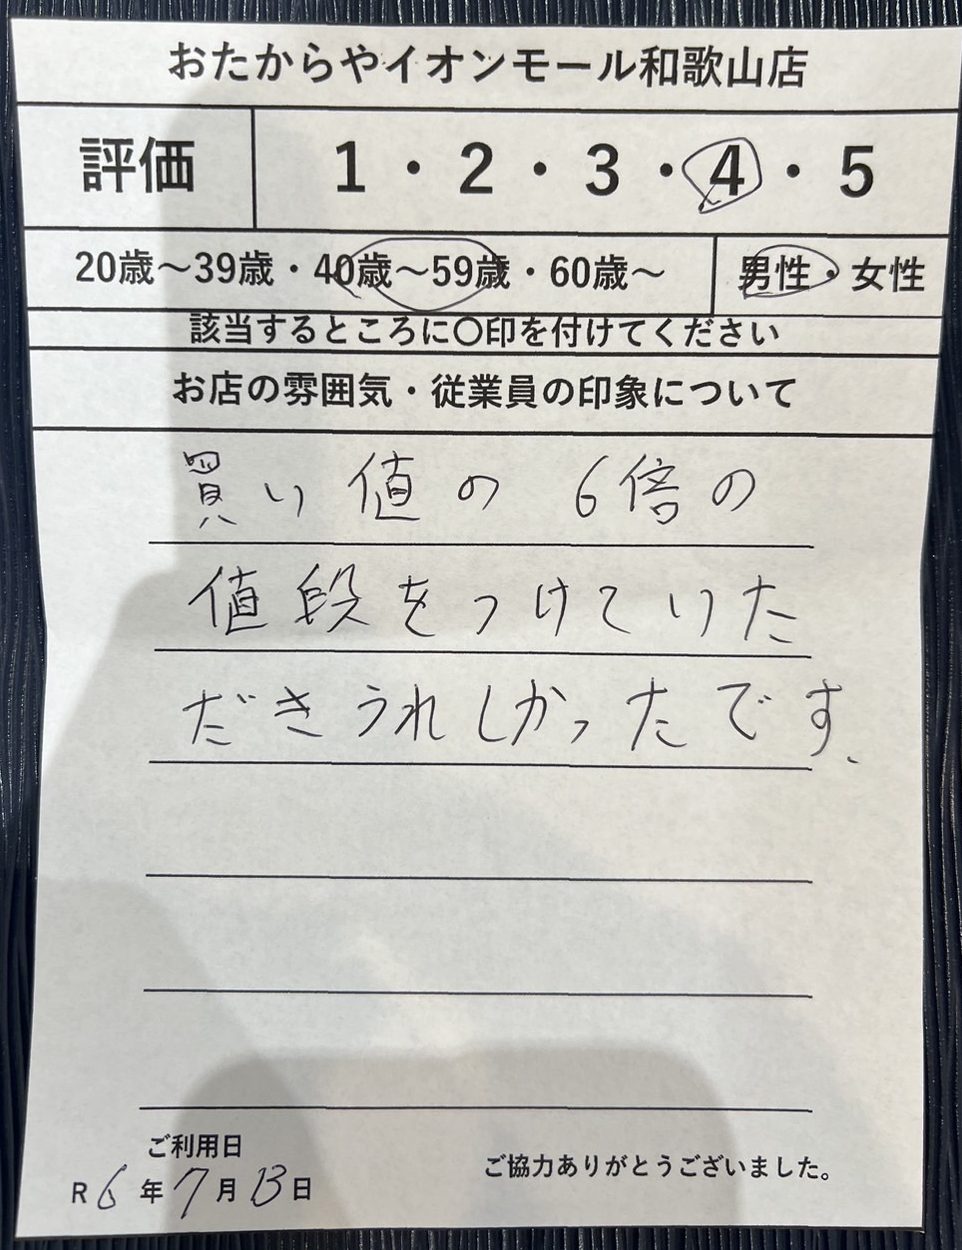 おたからやイオンモール和歌山店
評価 1・2・3・4・5
20歳～39歳・40歳～59歳・60歳～ 男性・女性
該当するところに〇印を付けてください
お店の雰囲気・従業員の印象について
買い値の6倍の
値段をつけていた
だきうれしかったです、
ご利用日
R6年7月13日
ご協力ありがとうございました。